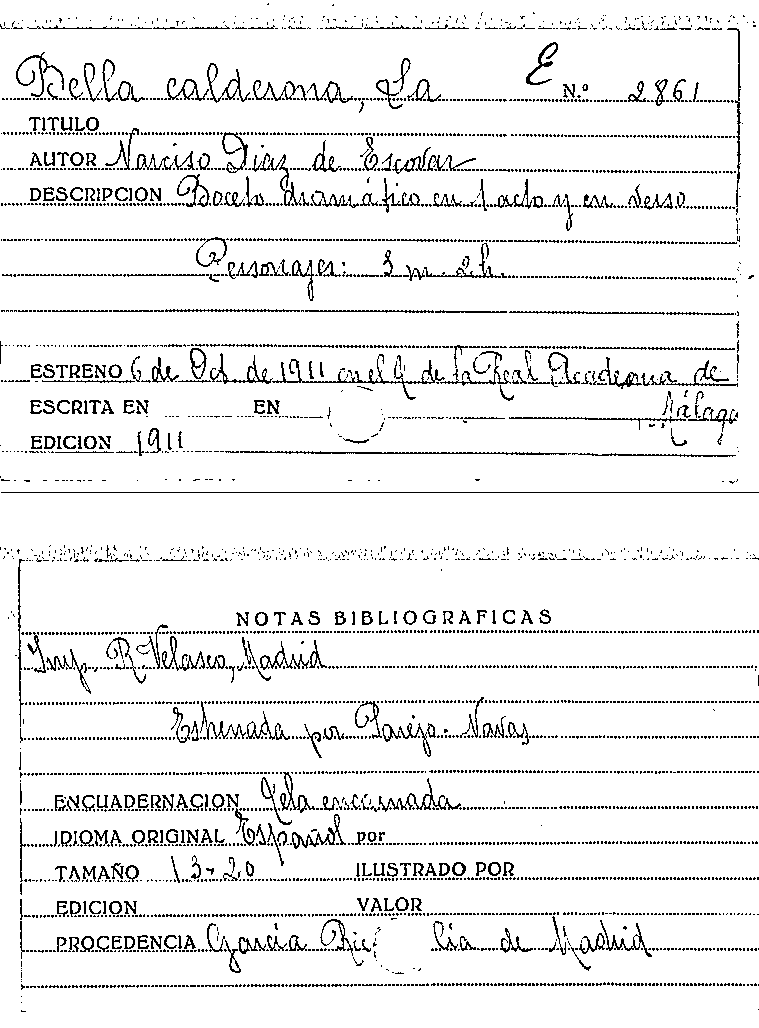 Bella calderona, La E N.º 2861
TITULO
AUTOR Narciso Diaz de Escovar
DESCRIPCION Boceto dramático en 1 acto y en verso
Personajes: 3 m. 2 h.
ESTRENO 6 de Oct. de 1911 en el T. de la Real Academia de
ESCRITA EN EN Málaga
EDICION 1911
NOTAS BIBLIOGRAFICAS
Imp. R. Velasco, Madrid
Estrenada por Parejo-Navas
ENCUADERNACION Tela encarnada
IDIOMA ORIGINAL Español por
TAMAÑO 13-20 ILUSTRADO POR
EDICION VALOR
PROCEDENCIA García Ric lia de Madrid